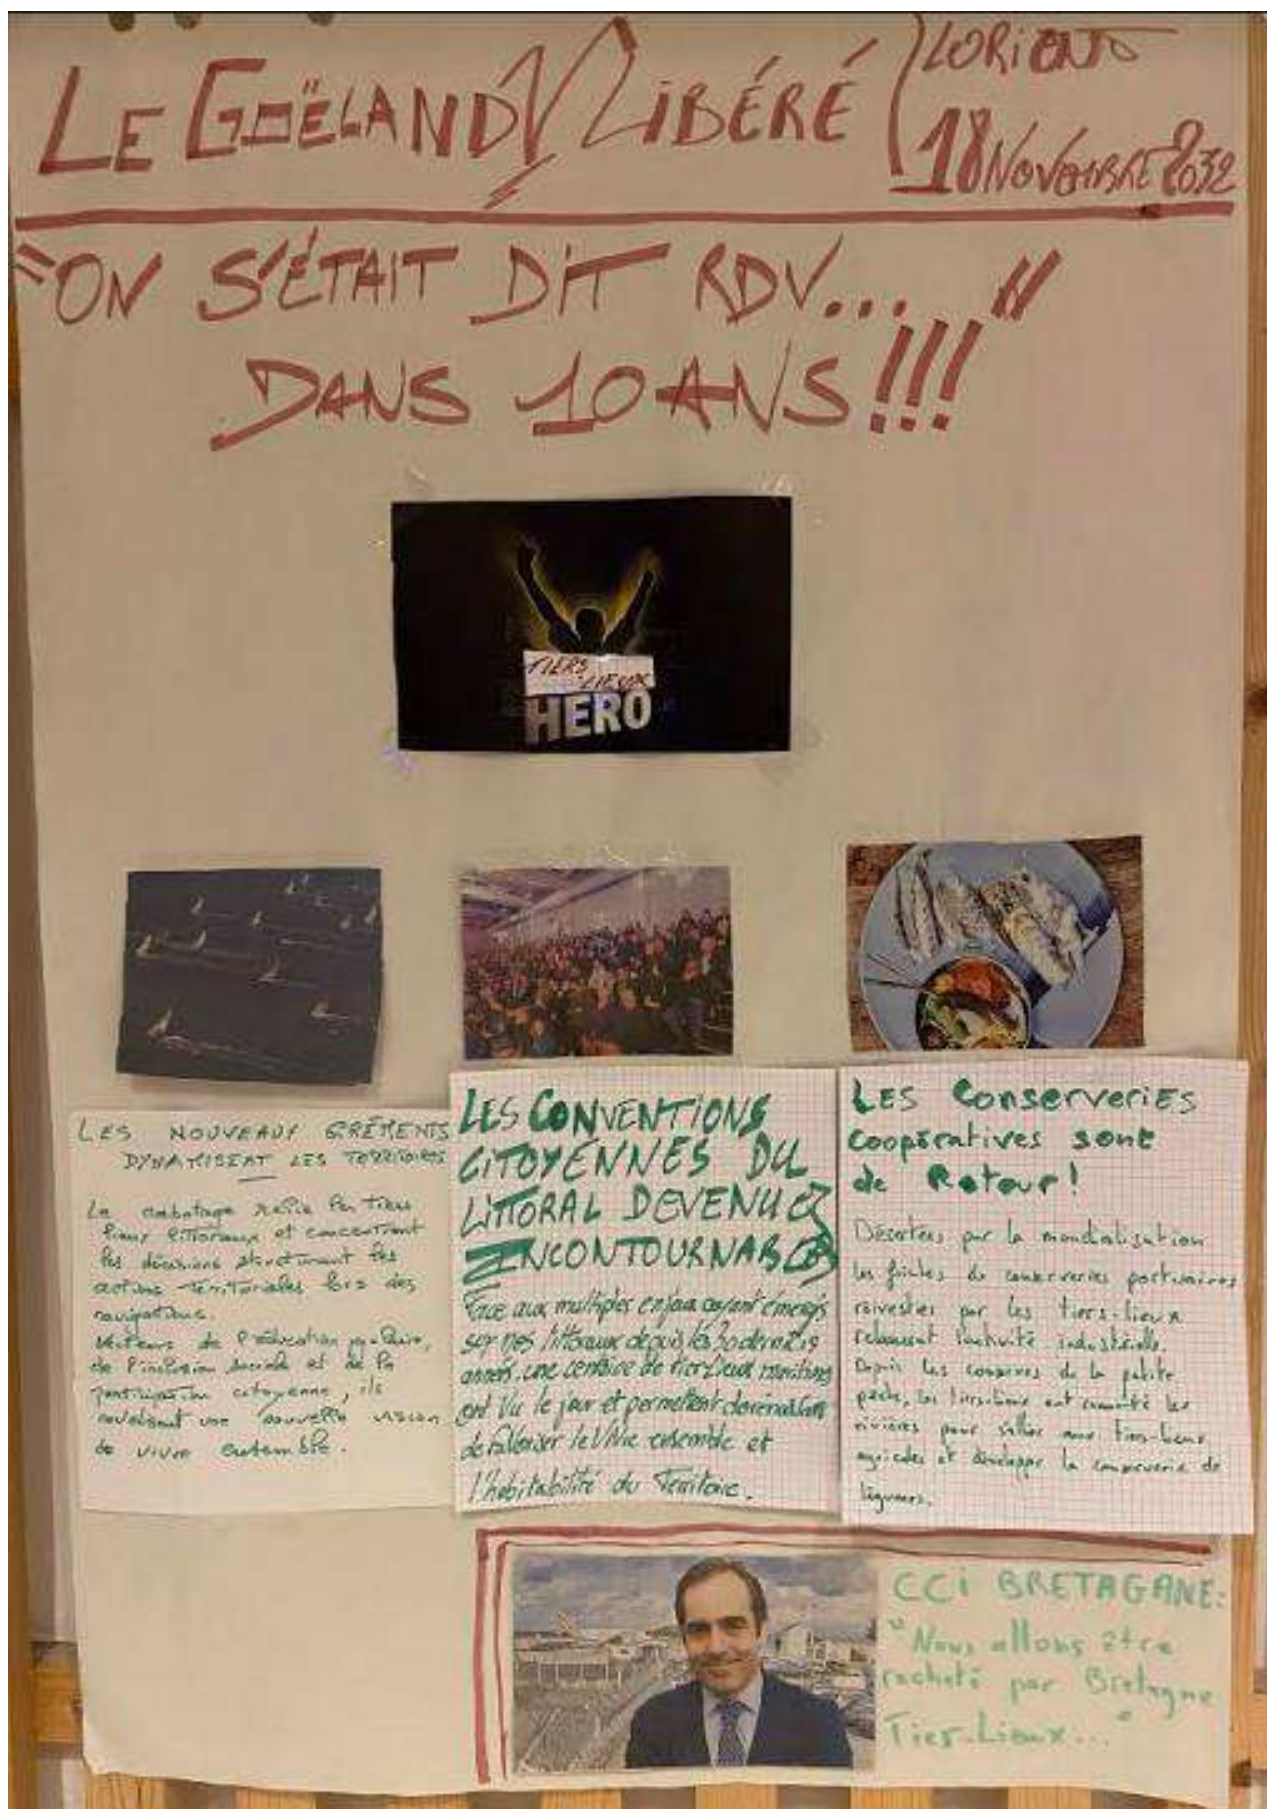 LE GOËLAND LIBÉRÉ
LORIENT
18 NOVEMBRE 2032
"ON S'ÉTAIT DIT RDV... "
DANS 10 ANS!!!
TIERS
LIEUX
HERO
LES NOUVEAUX GRÉMENTS
DYNAMISENT LES TERRITOIRES
Le cabotage relie les tiers
lieux littoraux et concentrent
les décisions structurant les
actions territoriales lors des
navigations.
Vecteurs de l'éducation populaire,
de l'inclusion sociale et de la
participation citoyenne, ils
une nouvelle vision
de vivre ensemble.
LES CONVENTIONS
CITOYENNES DU
LITTORAL DEVENUES
INCONTOURNABLES
Face aux multiples enjeux ayant émergés
sur nos littoraux depuis les 30 dernières
années, une centaine de tiers lieux maritimes
ont vu le jour et permettent dorénavant
de favoriser le Vivre ensemble et
l'habitabilité du Territoire.
LES Conserveries
coopératives sont
de Retour!
Désertées par la mondialisation
les friches de conserveries portuaires
réinvesties par les tiers-lieux
relancent l'activité industrielle.
Depuis les conserves de la petite
pêche, les tiers-lieux ont remonté les
rivières pour s'allier aux tiers-lieux
agricoles et développer la conserverie de
légumes.
CCI BRETAGANE:
"Nous allons être
racheté par Bretagne
Tiers-Lieux..."